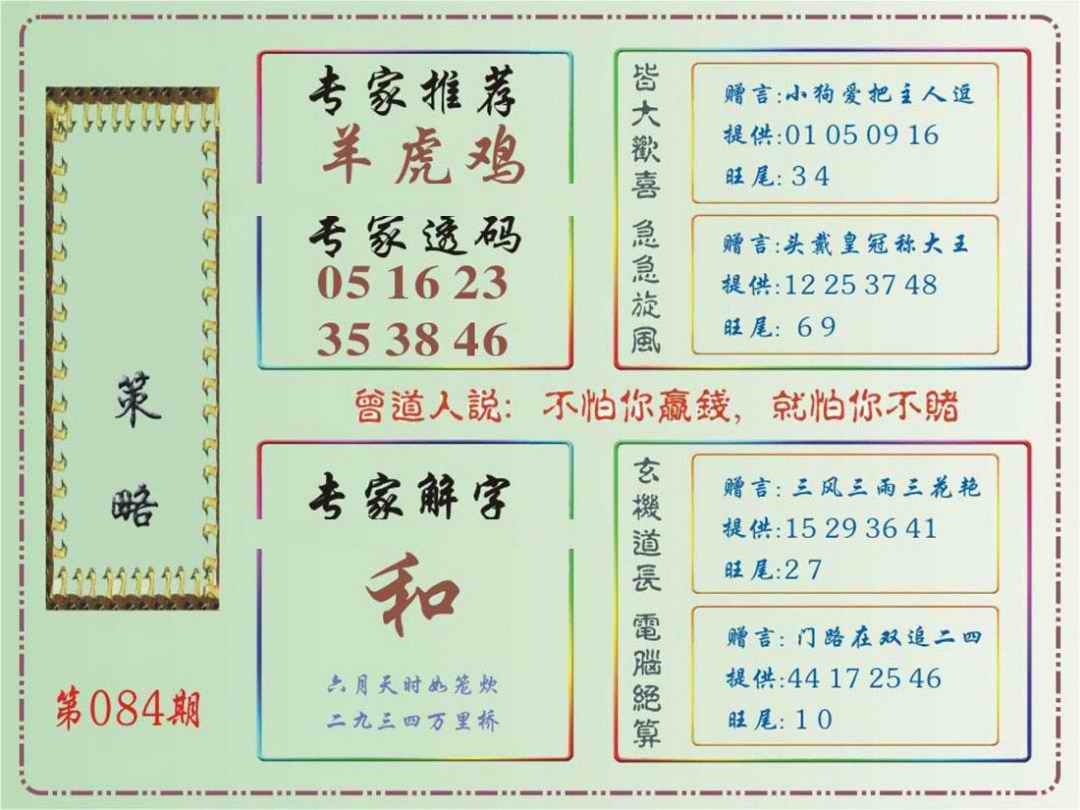 策略
第084期
专家推荐
羊虎鸡
专家透码
05 16 23
35 38 46
皆大歡喜
赠言:小狗爱把主人逗
提供:01 05 09 16
旺尾: 3 4
急急旋風
赠言:头戴皇冠称大王
提供:12 25 37 48
旺尾: 6 9
曾道人説: 不怕你贏錢, 就怕你不賭
专家解字
和
六月天时如笼炊
二九三四万里桥
玄機道長
赠言: 三风三雨三花艳
提供:15 29 36 41
旺尾:2 7
電腦絕算
赠言: 门路在双追二四
提供:44 17 25 46
旺尾: 1 0